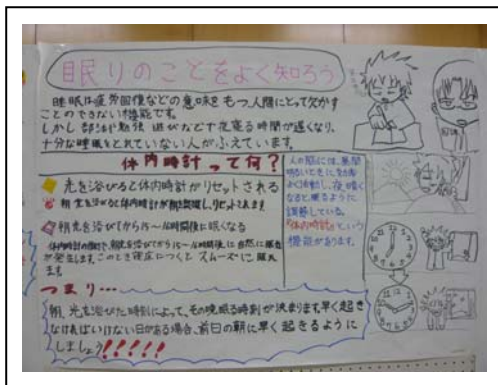 眠りのことをよく知ろう
睡眠は疲労回復などの意味をもつ、人間にとって欠かす
ことのできない機能です。
しかし部活や勉強 遊びなどで夜寝る時間が遅くなり、
十分な睡眠をとれていない人がふえています。
体内時計って何?
光を浴びると体内時計がリセットされる
朝 光を浴びると体内時計が朝と認識し、リセットされます
朝光を浴びてから15~16時間後に眠くなる
体内時計の働きで、朝光を浴びてから15~16時間後に自然に眠気
が発生します。このとき寝床につくとスムーズに眠れ
ます
人の脳には、昼間
明るいときに効率
よく活動し、夜暗く
なると眠るように
調整している。
「体内時計」という
機能があります。
つまり…
朝、光を浴びた時刻によって、その晩眠る時刻が決まります。早く起き
なければいけない日がある場合、前日の朝に早く起きるように
しましょう!!!!!